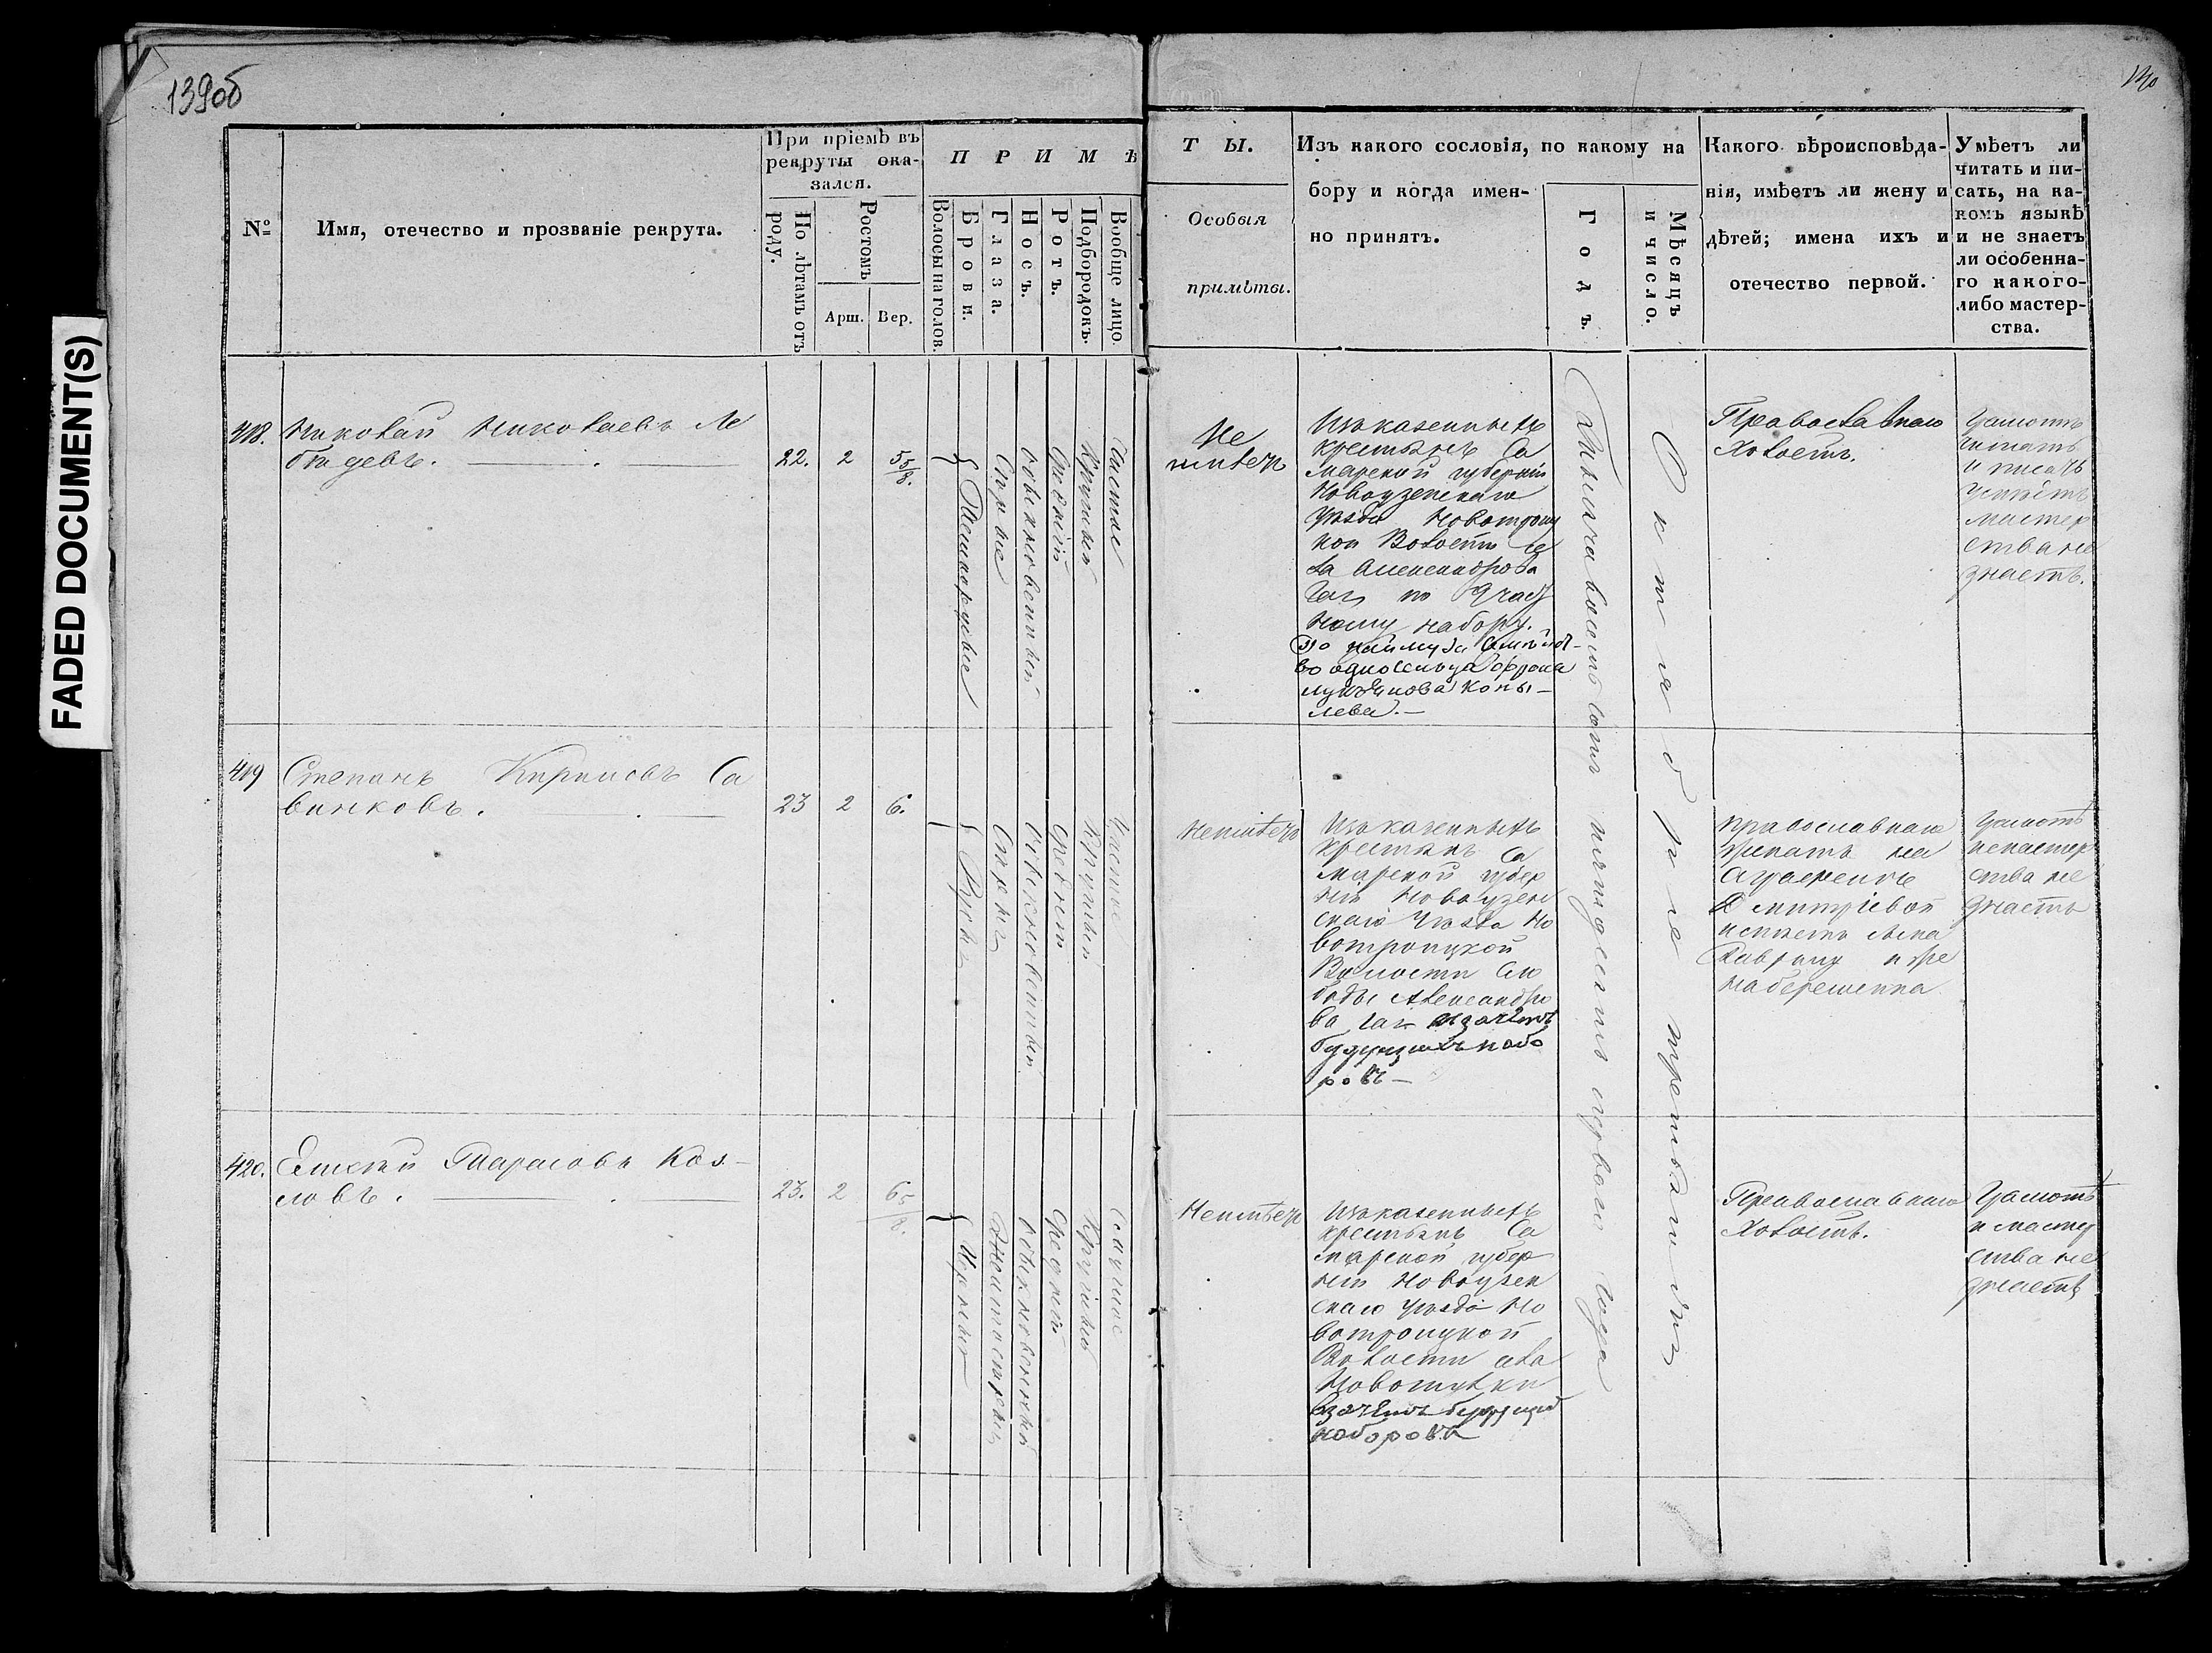 139об
140
FADED DOCUMENT(S)
№
Имя, отечество и прозваніе рекрута.
При пріемѣ въ
рекруты ока-
зался.
По лѣтамъ отъ
роду.
Ростомъ
Арш.
Вер.
П Р И М Ѣ
Волосы на голов.
Брови.
Глаза.
Носъ.
Ротъ.
Подбородокъ.
Вообще лицо.
Т Ы.
Особыя
примѣты.
Изъ какого сословія, по какому на
бору и когда имен-
но принятъ.
Годъ.
Мѣсяцъ
и число.
Какого вѣроисповѣда-
нія, имѣетъ ли жену и
дѣтей; имена ихъ и
отечество первой.
Умѣетъ ли
читать и пи-
сать, на ка-
комъ языкѣ
и не знаетъ
ли особенна-
го какого-
либо мастер-
ства.
418.
Николай Николаевъ Ле
бедевъ.
22. 2 5 5/8.
Темнорусые
Сѣрые
обыкновенный
Средній
Круглый
Чистое
Не
имѣетъ
Изъ казенныхъ
крестьянъ Са
марской губерніи
Новоузенскаго
уѣзда Новотроиц
кой Волости се
ла Александрова
Гая по
ному набору.
по найму за семейст-
во односельца Софрона
Лукьянова Копы-
лева.-
Тысяча восемь сотъ пятьдесятъ перваго года
Октября третьяго дня
Православнаго
Холостъ.
Грамотѣ
читать
и писать
умѣетъ
мастер
ства не
знаетъ.
419
Степанъ Кириловъ Са
винковъ.
23 2 6.
Русые
Сѣрые
обыкновенный
Средній
Круглый
Чистое
Неимѣетъ
Изъ казенныхъ
крестьянъ Са
марской губер
ніи Новоузен
скаго Уѣзда Но
вотроицкой
Волости Сло
боды Александро
ва Гая въ зачетъ
будущихъ набо
ровъ-
Православнаго
женатъ на
Аграфенѣ
Дмитріевой
имѣетъ сына
Гаврилу и же
на беременна
Грамотѣ
и мастер
ства не
знаетъ
420.
Елисей Тарасовъ Коз-
ловъ.
23. 2 6 5/8.
Черные
Желтосѣрые
обыкновенный
Средній
Круглый
Смуглое
Неимѣетъ
Изъ казенныхъ
крестьянъ Са
марской губер
ніи Новоузен
скаго уѣзда Но
вотроицкой
Волости села
въ зачетъ будущихъ
наборовъ
Православнаго
Холостъ.
Грамотѣ
и мастер
ства не
знаетъ